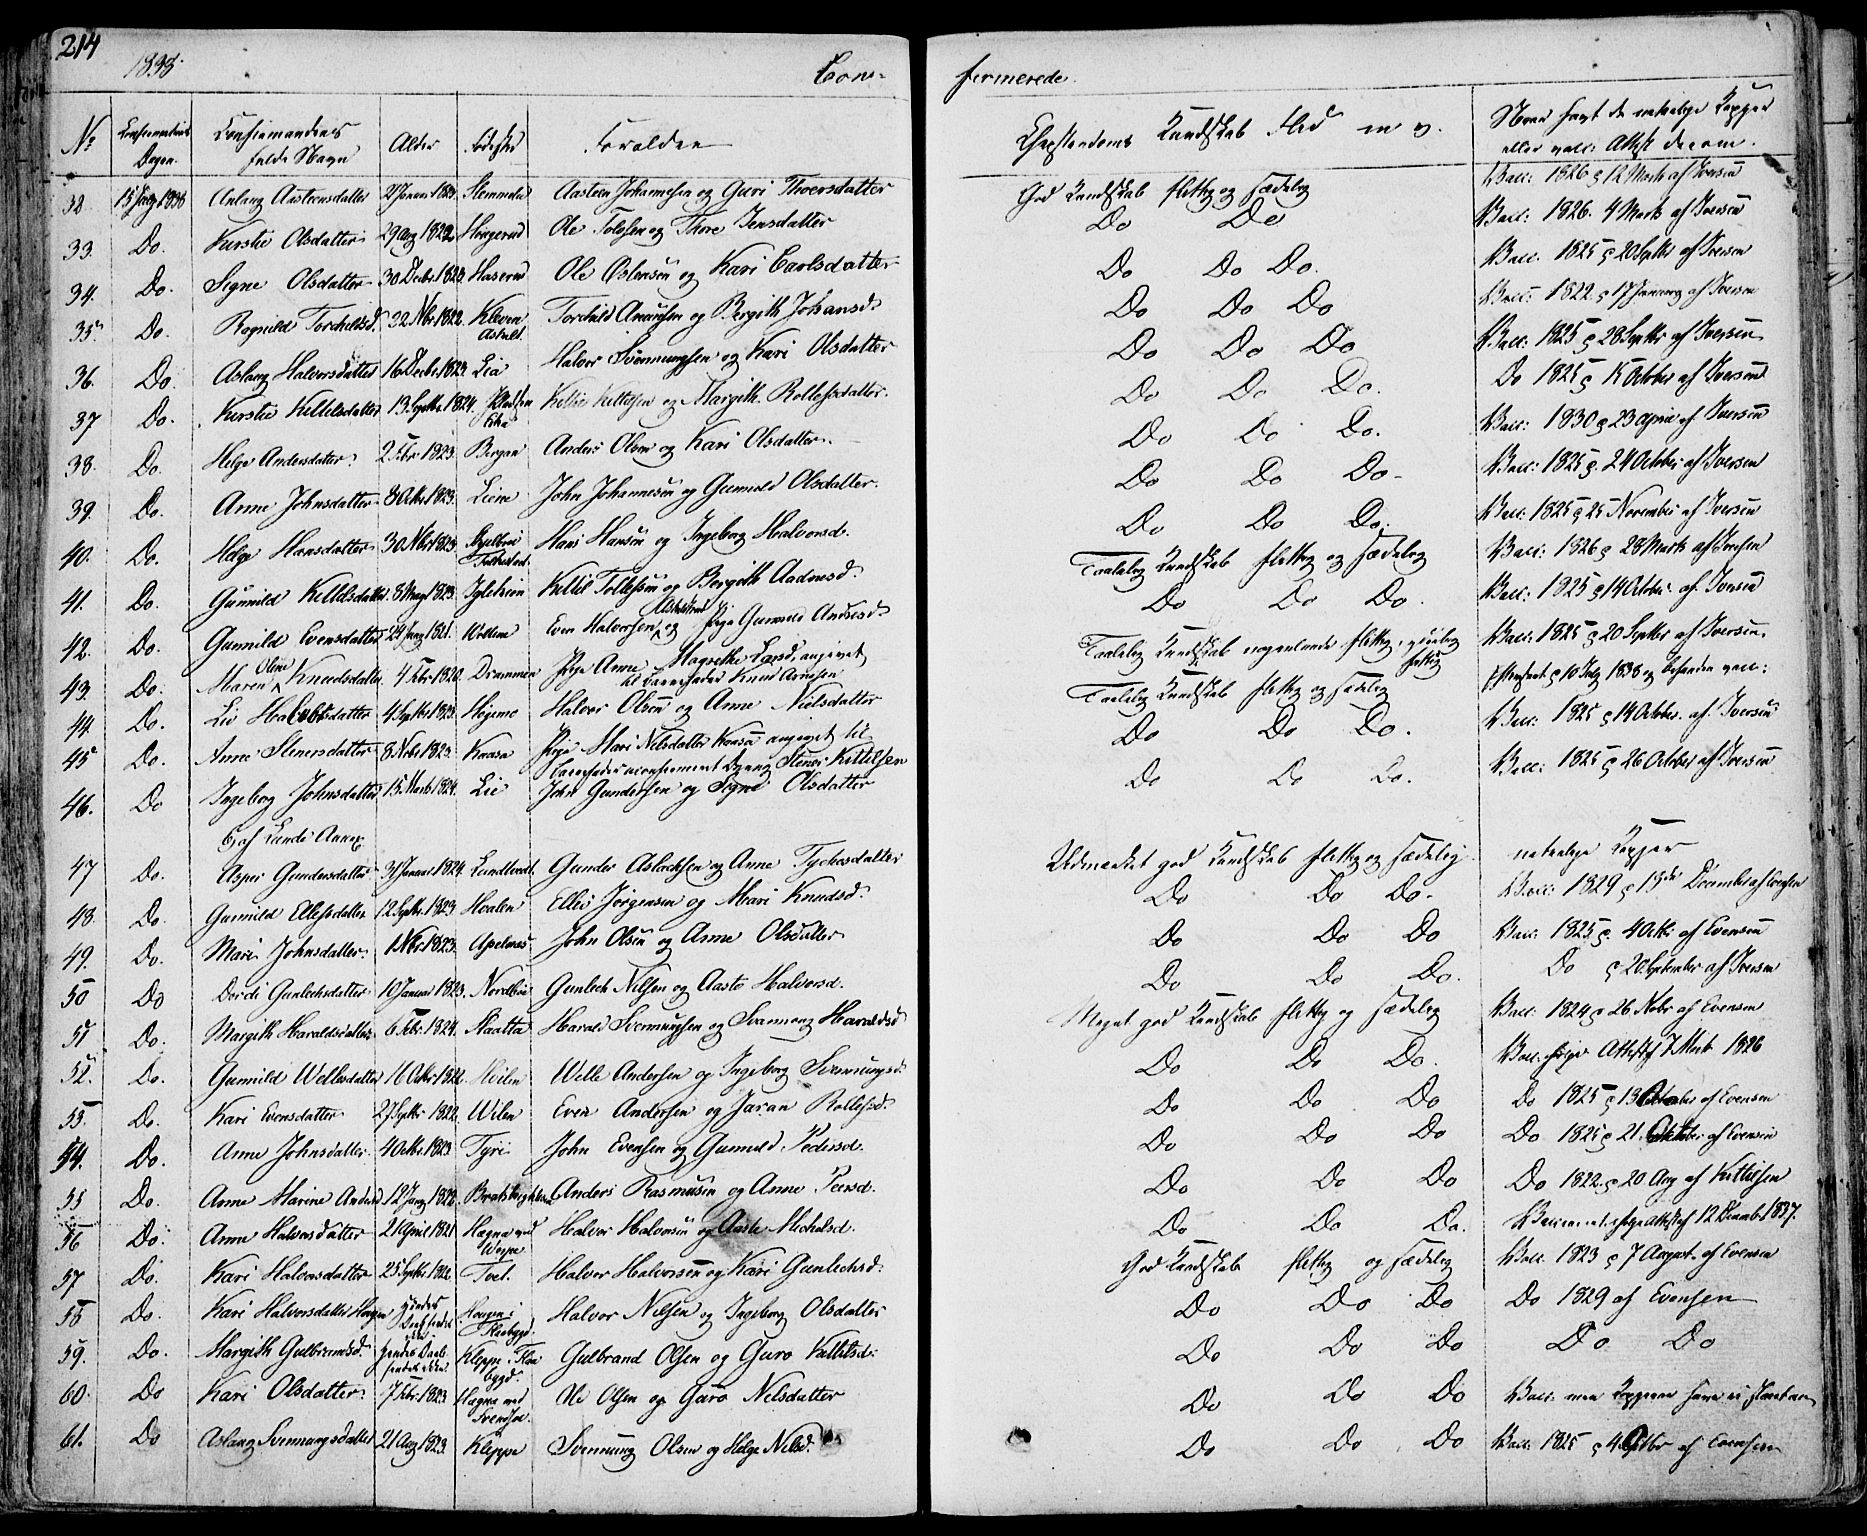 214
1838.
Con-
firmerede.
No
Confirmations Dagen
Confirmandens fulde Navn
Alder
Fødested
Forældre
Christendoms Kundskab Flid m. v.
Naar havt de naturlige Kopper eller vacc: Attest derom.
32. 15 July 1838 Aslaug Aasteensdatter 2 Januar 1823 Aasteen Johannesen og Guri Thorsdatter God Kundskab flittig og sædelig Vacc: 1826 12 Marts af Iversen
33. Do. Kirstie Olsdatter 29 Aug 1822 Haugerud Ole Tolofsen og Thore Jensdatter Do Do Vacc: 1826. 4 Marts af Iversen
34. Do. Signe Olsdatter 30 Decbr 1823 Haserud Ole Ostensen og Kari Carlsdatter Do Do Do. Vacc. 1825 d 20 Septbr af Iversen
35. Do. Ragnild Torchilsd. 22 Nbr 1822. Kleven Torchild Amundsen og Bergith Johansd. Do Do Do Vacc: 1822. d 17 January af Iversen
36. Do. Aslaug Halvorsdatter 16 Decbr 1823. Lia Halvor Svenningsen og Kari Olsdatter Do Do Do Vacc: 1825 d 28 Septbr af Iversen
37 Do. Kirstie Kittelsdatter 13 Septbr. 1824. Kittil Kittelsen og Margith Rollefsdatter. Do Do Do. Do 1825 d 15 October af Iversen
38. Do. Helge Andersdatter 2 Febr 1823. Bergan Anders Olsen og Kari Olsdatter. Do Do Do. Vacc: 1830 d 23 April af Iversen
39. Do. Anne Johnsdatter 8 Octbr 1823. Liene John Johannesen og Gunnild Olsdatter. Do Do Do. Vacc: 1825 d. 24 October af Iversen
40. Do. Helge Hansdatter 30 Nbr 1823. Hans Hansen og Ingeborg Halvorsd. Do Do Do. Vacc: 1825 d 25 November af Iversen
41. Do. Gunnild Kittelsdatter 8 May 1823. Kittil Tollefsen og Bergith Aadnesd. Taalelig Kundskab flittig og sædelig Vacc: 1826 d 28 Marts af Iversen
42. Do. Gunnild Evensdatter 24 July 1821. Wollene Even Halvorsen og Pige Gunnild Andersd. Do Do Do. Vacc: 1825 d 14 October af Iversen
43. Do. Maren Oline Knudsdatter 4 Febr 1820. Drammen Pige Anne Magrethe Larsd, angivet til Barnefader Knud Arnesen Taalelig Kundskab nogenlunde flittig Vacc: 1825 d 20 Septbr af Iversen.
44. Do. Liv Halvorsdatter 4 Septbr 1823. Hejemo Halvor Olsen og Anne Nielsdatter Taalelig Kundskab flittig og sædelig d 10 July 1838 og befunden vacc:
45 Do. Anne Stenersdatter 8 Nobr 1823. Kaasa Pige Mari Nilsdatter Kaasa angivet til Barnefader Stener Kittilsen Do Do Do. Vacc: 1825 d 14 October. af Iversen
46. Do Ingeborg Johnsdatter 15 Marts 1824. Lie John Gundersen og Signe Olsdatter Do Do Do. Vacc: 1825 d 26 October af Iversen
af Lunde Annex
47 Do. Asper Gundersdatter 31 Januar 1824. Lundtvedt. Gunder Aslachsen og Anne Tychesdatter Udmærket god Kundskab flittig og sædelig. naturlige Kopper
48. Do. Gunnild Ellefsdatter 12 Septbr. 1823 Hvalen Ellev Jørgensen og Mari Knudsd. Do Do Do. Vacc: 1829 d 13de December af Evensen
49. Do. Mari Johnsdatter 1 Nbr 1823. Apelnæs John Olsen og Anne Olsdatter Do Do Do Vacc: 1825. d. 4 Octbr af Evensen
50 Do Dordi Gunlechsdatter 10 Januar 1823. Nordbøe Gunlech Nilsen og Aaste Halvorsd. Do Do Do. Do d 20 September af Iversen
51 Do. Margith Haraldsdatter 6 Febr. 1824. Staatta Harald Svenningsen og Svannoug Haraldsd Meget god Kundskab flittig og sædelig Vacc: 1824 d 26 Nobr af Evensen
52. Do. Gunnild Wellesdatter 16 Octbr 1822. Welle Andersen og Ingeborg Svennungsd. Do Do Do. Vacc. ifølge Attest af 7 Marts 1826
53. Do. Kari Evensdatter 27 Septbr 1822. Wilen Even Andersen og Jaran Rollefsd. Do Do Do Do 1825 d 13 October af Evensen
54. Do. Anne Johnsdatter 4 Octbr. 1823. Tyri John Evensen og Gunnild Pedersd. Do Do Do Do 1825 d 21. Octbr af Evensen
55 Do. Anne Marine Andersd 12 July 1822. Anders Rasmusen og Anne Peersd. Do Do Do Do 1822. d 20 Aug af Kittilsen
56 Do. Anne Halvorsdatter 21 April 1821 Halvor Halvorsen og Aaste Michelsd. Do Do Do. ifølge Attest af 12 Decemb. 1837.
57 Do. Kari Halvorsdatter 25 Septbr 1822. Tvet. Halvor Halvorsen og Kari Gunlechsd. God Kundskab flittig og sædelig Vacc. 1823 d 7 August. af Evensen
58 Do. Kari Halvorsdatter Haugen Haugen i Flaabygd. Halvor Nilsen og Ingeborg Olsdatter Do Do Do Do 1829 af Evensen
59. Do. Margith Gulbrandsd. Kleppe i Flaabygd. Gulbrand Olsen og Guro Kittilsd. Do Do Do Do Do
60. Do Kari Olsdatter 7 Febr. 1823 Ole Olsen og Guro Nilsdatter Do Do Do Vacc. men Kopperne
61. Do Aslaug Svennungsdatter 21 Aug 1823. Kleppe Svennung Olsen og Helge Nilsd. Do Do Do Vacc: 1825 d 4 Octbr af Evensen